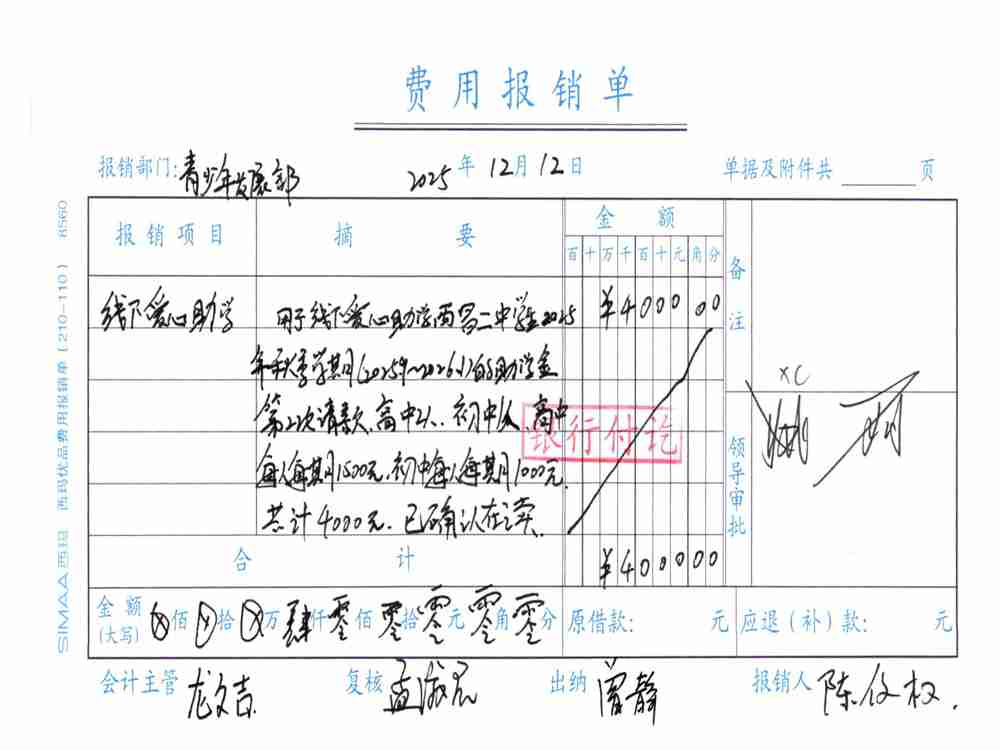 费用报销单
报销部门:青少年发展部 2025年12月12日 单据及附件共 页
报销项目 摘要 金额 备注
百十万千百十元角分
线下爱心助学 用于线下爱心助学西昌二中学生2025 ¥4000 00
年秋季学期(2025.9~2026.1)的助学金
第二次请款,高中2人、初中1人,高中
每人每期1500元,初中每人每期1000元,
共计4000元.已确认在读.
银行付讫
领导审批
XC
合计 ¥400000
金额(大写) ⊗佰⊗拾⊗万肆仟零佰零拾零元零角零分 原借款: 元 应退(补)款: 元
会计主管 龙文吉 复核 孟淑君 出纳 曾静 报销人 陈俊权.
SIMAA西玛 西玛优品费用报销单(210-110) 6560